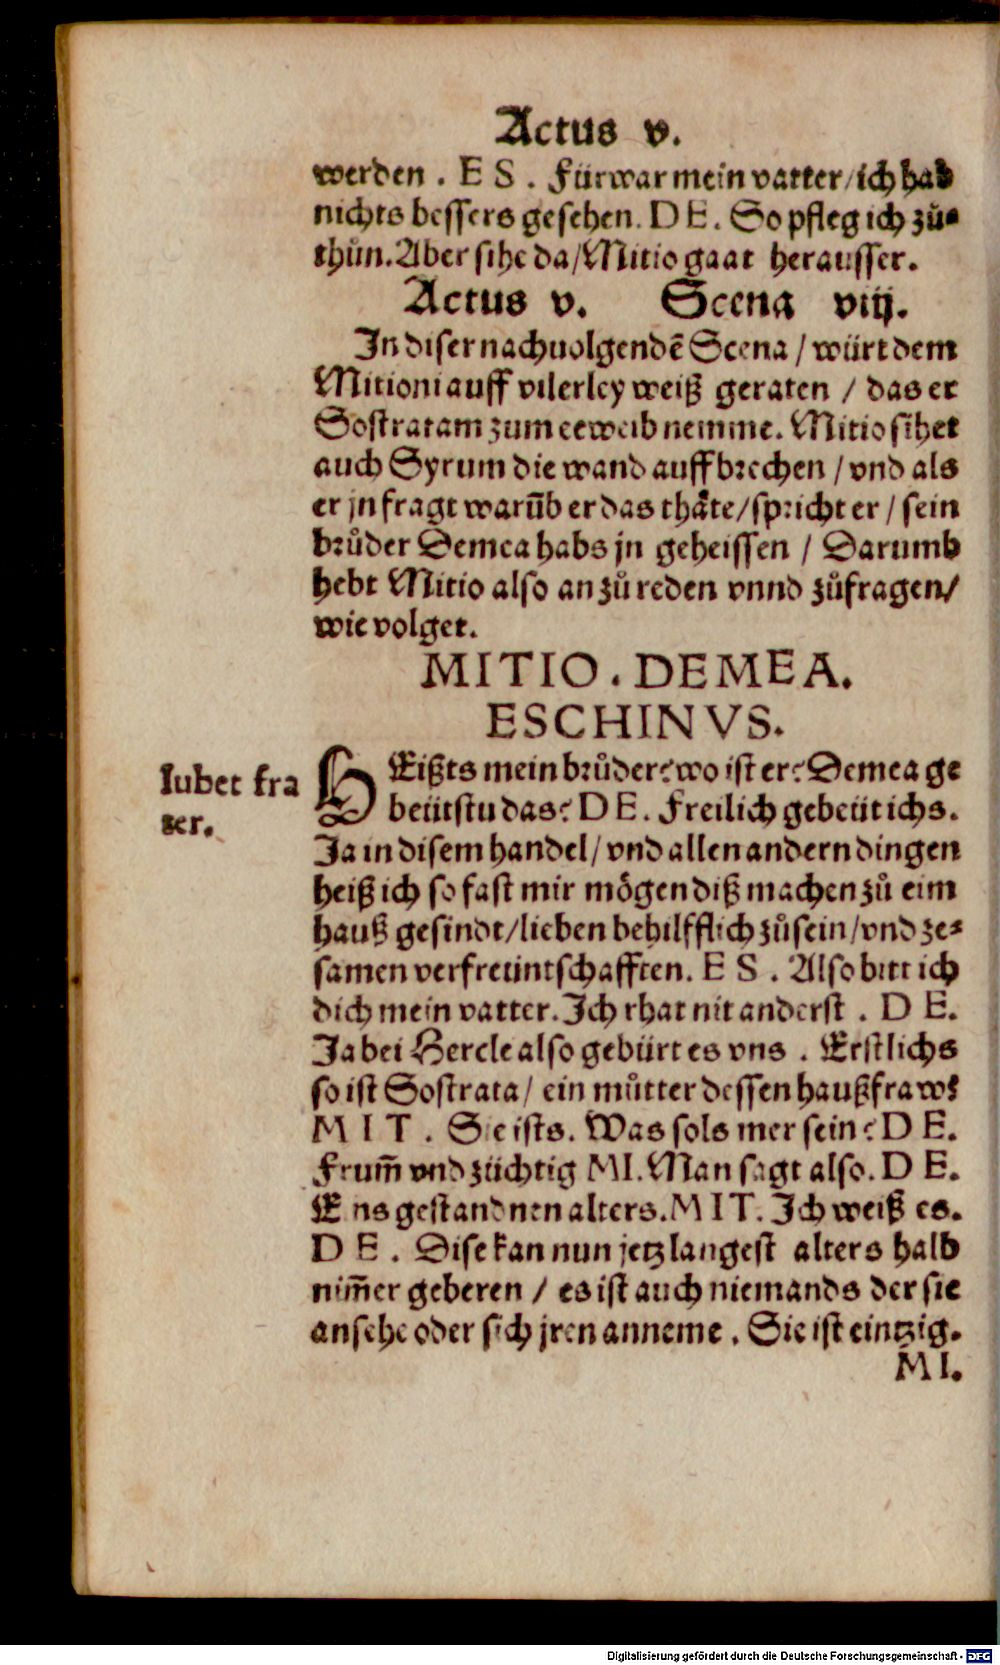 Actus v.
werden . E S . Fürwar mein vatter/ich hab
nichts bessers gesehen. D E. So pfleg ich zů-
thůn. Aber sihe da/Mitio gaat herausser.
Actus v. Scena viij.
In diser nachuolgendē Scena / würt dem
Mitioni auff vilerley weiß geraten / das er
Sostratam zum eeweib nemme. Mitio sihet
auch Syrum die wand auffbrechen / vnd als
er jn fragt warūb er das thäte/spricht er / sein
brůder Demea habs jn geheissen / Darumb
hebt Mitio also an zů reden vnnd zůfragen/
wie volget.
MITIO. DEMEA.
ESCHINVS.
Iubet fra
ter.
HEißts mein brůder? wo ist er? Demea ge
beütstu das? D E. Freilich gebeüt ichs.
Ja in disem handel/ vnd allen andern dingen
heiß ich so fast mir mögen diß machen zů eim
hauß gesindt/lieben behilfflich zůsein/vnd ze-
samen verfreüntschafften. E S . Also bitt ich
dich mein vatter. Ich rhat nit anderst . D E.
Ja bei Hercle also gebürt es vns . Erstlichs
so ist Sostrata/ ein můtter dessen haußfraw?
M I T . Sie ists. Was sols mer sein? D E.
Frum̄ vnd züchtig MI. Man sagt also. D E.
Eins gestandnen alters. M I T. Ich weiß es.
D E . Dise kan nun jetz langest alters halb
nim̄er geberen / es ist auch niemands der sie
ansehe oder sich jren anneme . Sie ist eintzig.
M I.
Digitalisierung gefördert durch die Deutsche Forschungsgemeinschaft - DFG